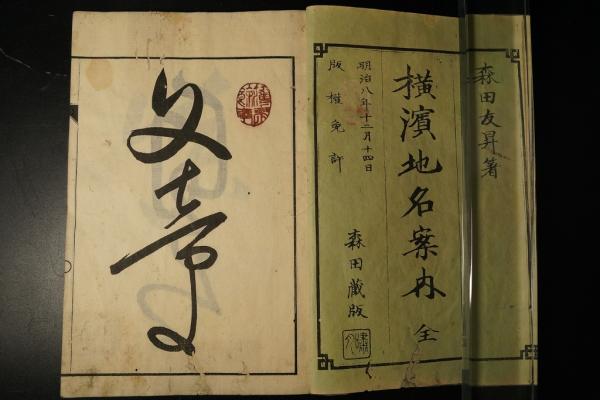 森田友昇著
横濱地名案内 全
明治八年十二月十四日
版權免許
森田藏版
文章